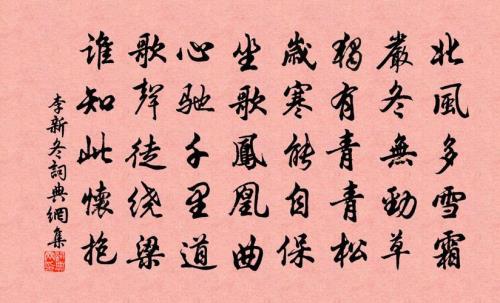 北風多雪霜
嚴冬無勁草
獨有青青松
歲寒能自保
坐歌鳳凰曲
心馳千里道
歌聲徒绕梁
誰知此懷抱
李新冬詞典網集